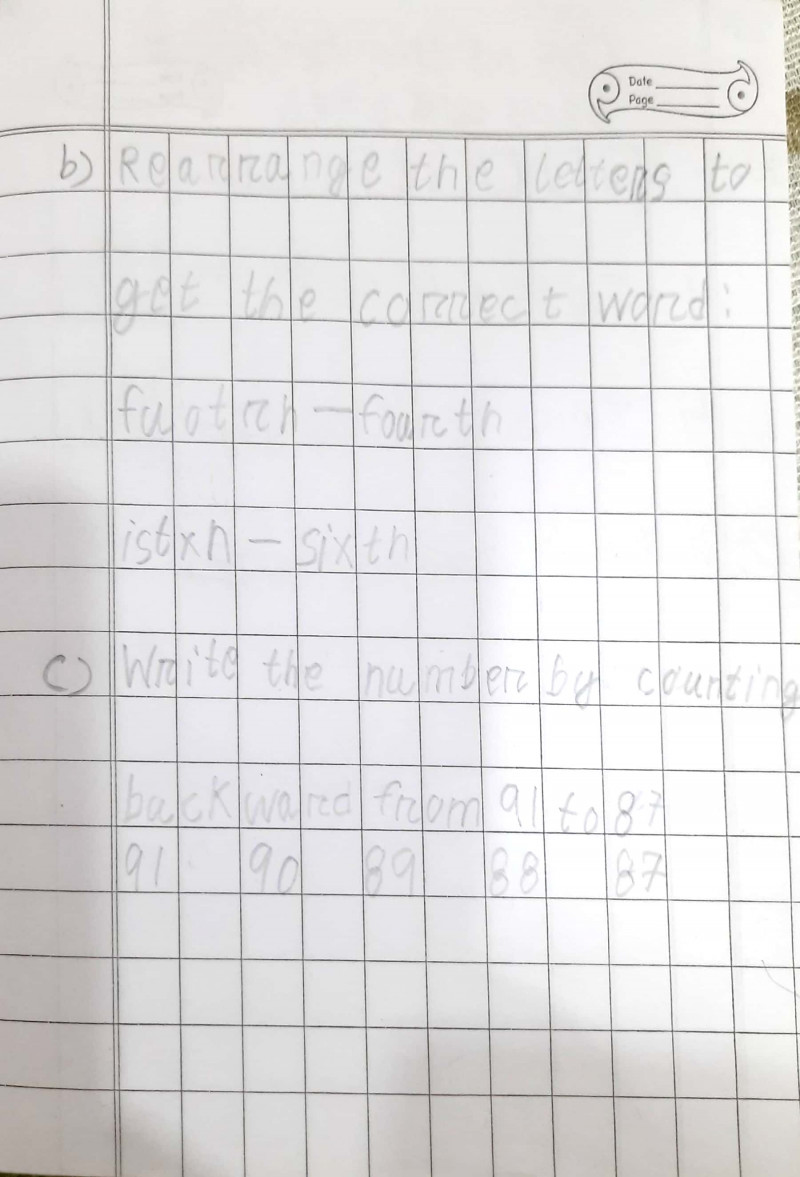 Date
Page
b) Rearrange the letters to
get the correct word:
fuotrh — fourth
istxh — sixth
c) Write the number by counting
backward from 91 to 87
91 90 89 88 87